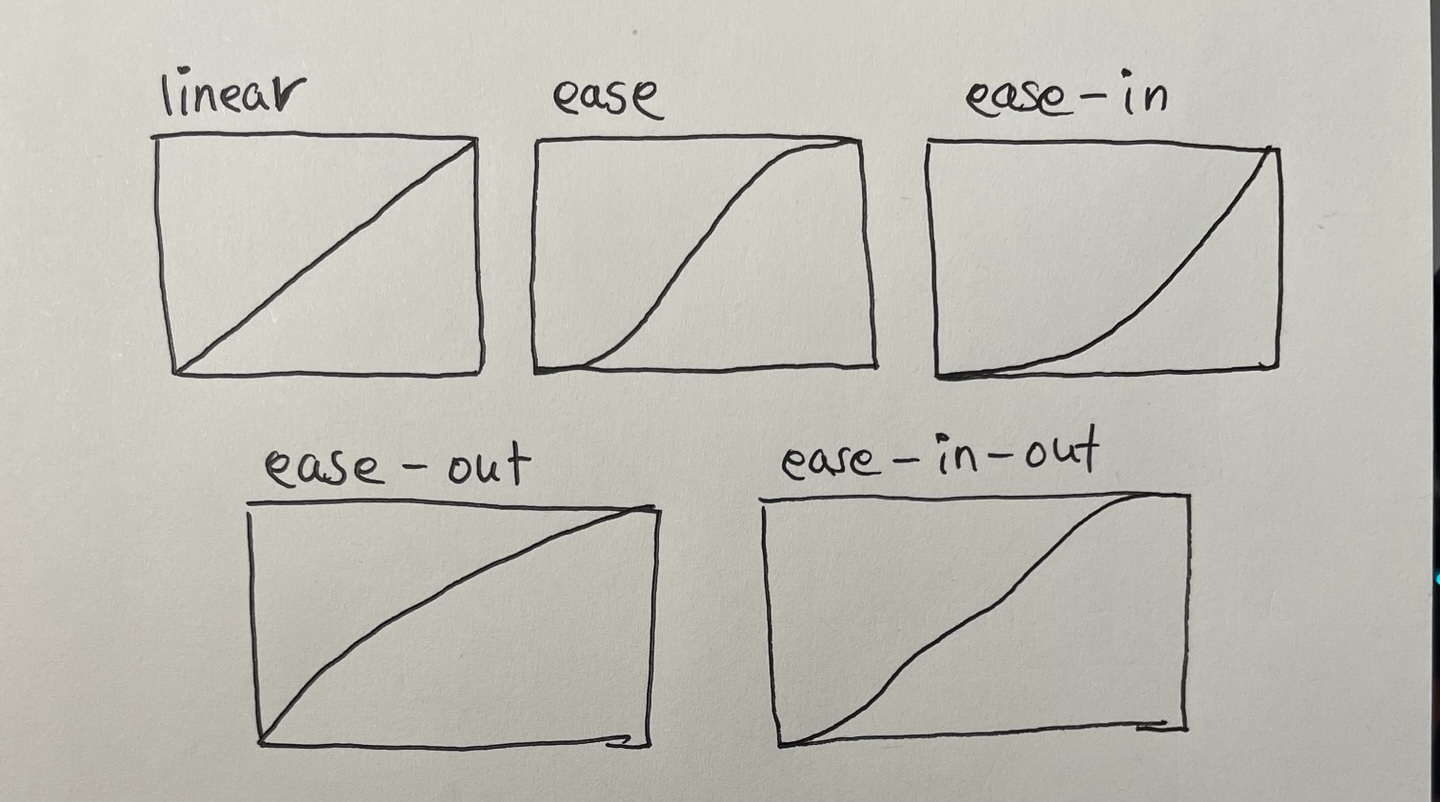 linear ease ease-in
ease-out ease-in-out